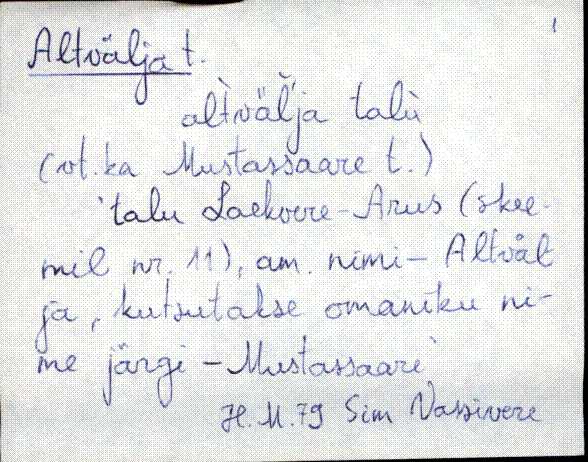 1
Altvälja t.
altvälja talu
(vt. ka Mustassaare t.)
'talu Laekvere-Arus (skee-
mil nr. 11), am. nimi - Altväl
ja, kutsutakse omaniku ni-
me järgi - Mustassaare
H. M. 79 Sim Vassivere